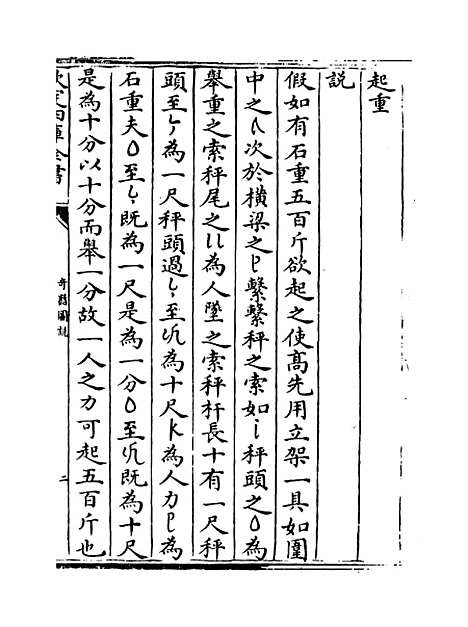 起重
説
假如有石重五百斤欲起之使髙先用立架一具如圖
中之八次於橫梁之ㄗ繫繫秤之索如i秤頭之O為
舉重之索秤尾之ll為人墜之索秤杆長十有一尺秤
頭至ㄣ為一尺秤頭過ㄣ至为十尺k為人力ㄗ為
石重夫O至ㄣ既為一尺是為一分O至既為十尺
是為十分以十分而舉一分故一人之力可起五百斤也
欽定四庫全書
奇器圖説
二